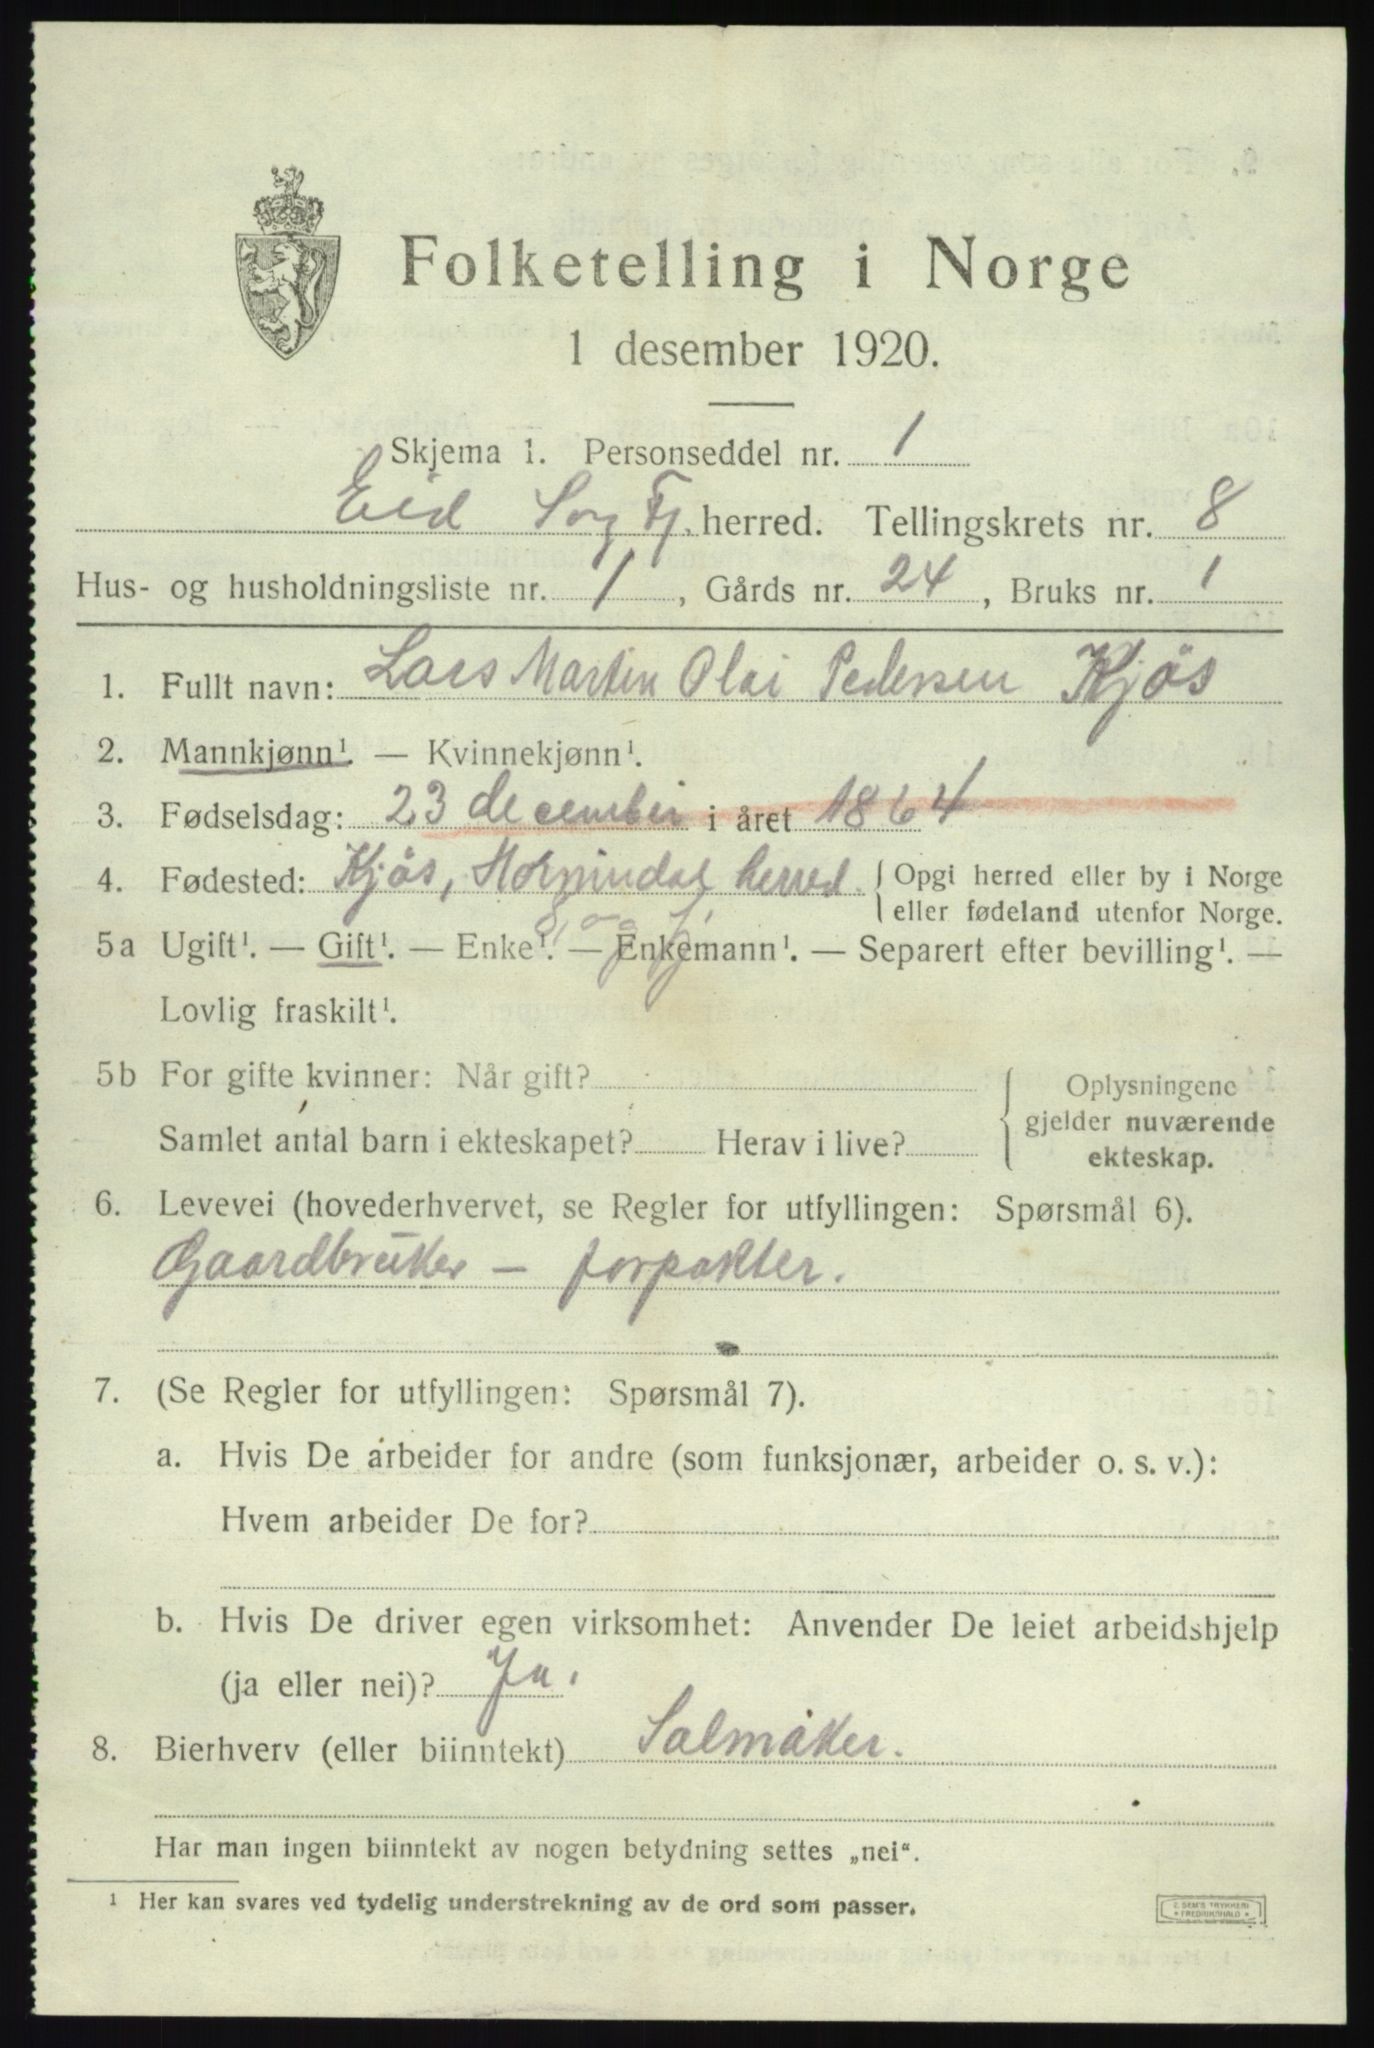 Folketelling i Norge
1 desember 1920.
Skjema 1. Personseddel nr. 1
Eid Sogn Fj. herred. Tellingskrets nr. 8
Hus- og husholdningsliste nr. 1, Gårds nr. 24, Bruks nr. 1
1. Fullt navn: Lars Martin Olai Pedersen Kjös
2. Mannkjønn¹. — Kvinnekjønn¹.
3. Fødselsdag: 23 december i året 1864
4. Fødested: Kjös, Hornindal herred { Opgi herred eller by i Norge
eller fødeland utenfor Norge.
S. og Fj.
5a Ugift¹. — Gift¹. — Enke¹. — Enkemann¹. — Separert efter bevilling¹. —
Lovlig fraskilt¹.
5b For gifte kvinner: Når gift? { Oplysningene
gjelder nuværende
Samlet antal barn i ekteskapet? Herav i live?
ekteskap.
6. Levevei (hovederhvervet, se Regler for utfyllingen: Spørsmål 6).
Gaardbruker — forpakter.
7. (Se Regler for utfyllingen: Spørsmål 7).
a. Hvis De arbeider for andre (som funksjonær, arbeider o. s. v.):
Hvem arbeider De for?
b. Hvis De driver egen virksomhet: Anvender De leiet arbeidshjelp
(ja eller nei)? Ja.
8. Bierhverv (eller biinntekt) Salmåker.
Har man ingen biinntekt av nogen betydning settes „nei“.
¹ Her kan svares ved tydelig understrekning av de ord som passer.
E. SEM'S TRYKKERI
* FREDRIKSHALD *